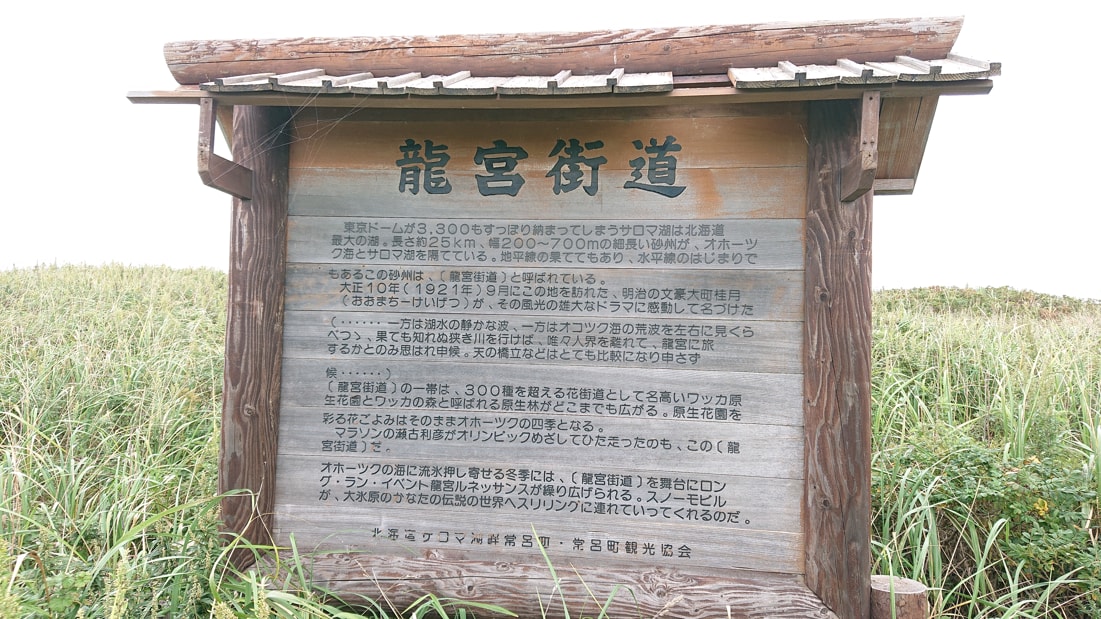 龍宮街道
東京ドームが3,300もすっぽり納まってしまうサロマ湖は北海道
最大の湖。長さ約25km、幅200〜700mの細長い砂州が、オホーツ
ク海とサロマ湖を隔てている。地平線の果ててもあり、水平線のはじまりで
もあるこの砂州は、〔龍宮街道〕と呼ばれている。
大正10年(1921年)9月にこの地を訪れた、明治の文豪大町桂月
(おおまちーけいげつ)が、その風光の雄大なドラマに感動して名づけた
(‥‥‥一方は湖水の静かな波、一方はオコツク海の荒波を左右に見くら
べつゝ、果ても知れぬ狭き川を行けば、唯々人界を離れて、龍宮に旅
するかとのみ思はれ申候。天の橋立などはとても比較になり申さず
候‥‥‥)
〔龍宮街道〕の一帯は、300種を超える花街道として名高いワッカ原
生花園とワッカの森と呼ばれる原生林がどこまでも広がる。原生花園を
彩る花ごよみはそのままオホーツクの四季となる。
マラソンの瀬古利彦がオリンピックめざしてひた走ったのも、この〔龍
宮街道〕だ。
オホーツクの海に流氷押し寄せる冬季には、〔龍宮街道〕を舞台にロン
グ・ラン・イベント龍宮ルネッサンスが繰り広げられる。スノーモビル
が、大氷原のかなたの伝説の世界へスリリングに連れていってくれるのだ。
北海道サロマ湖畔常呂町・常呂町観光協会